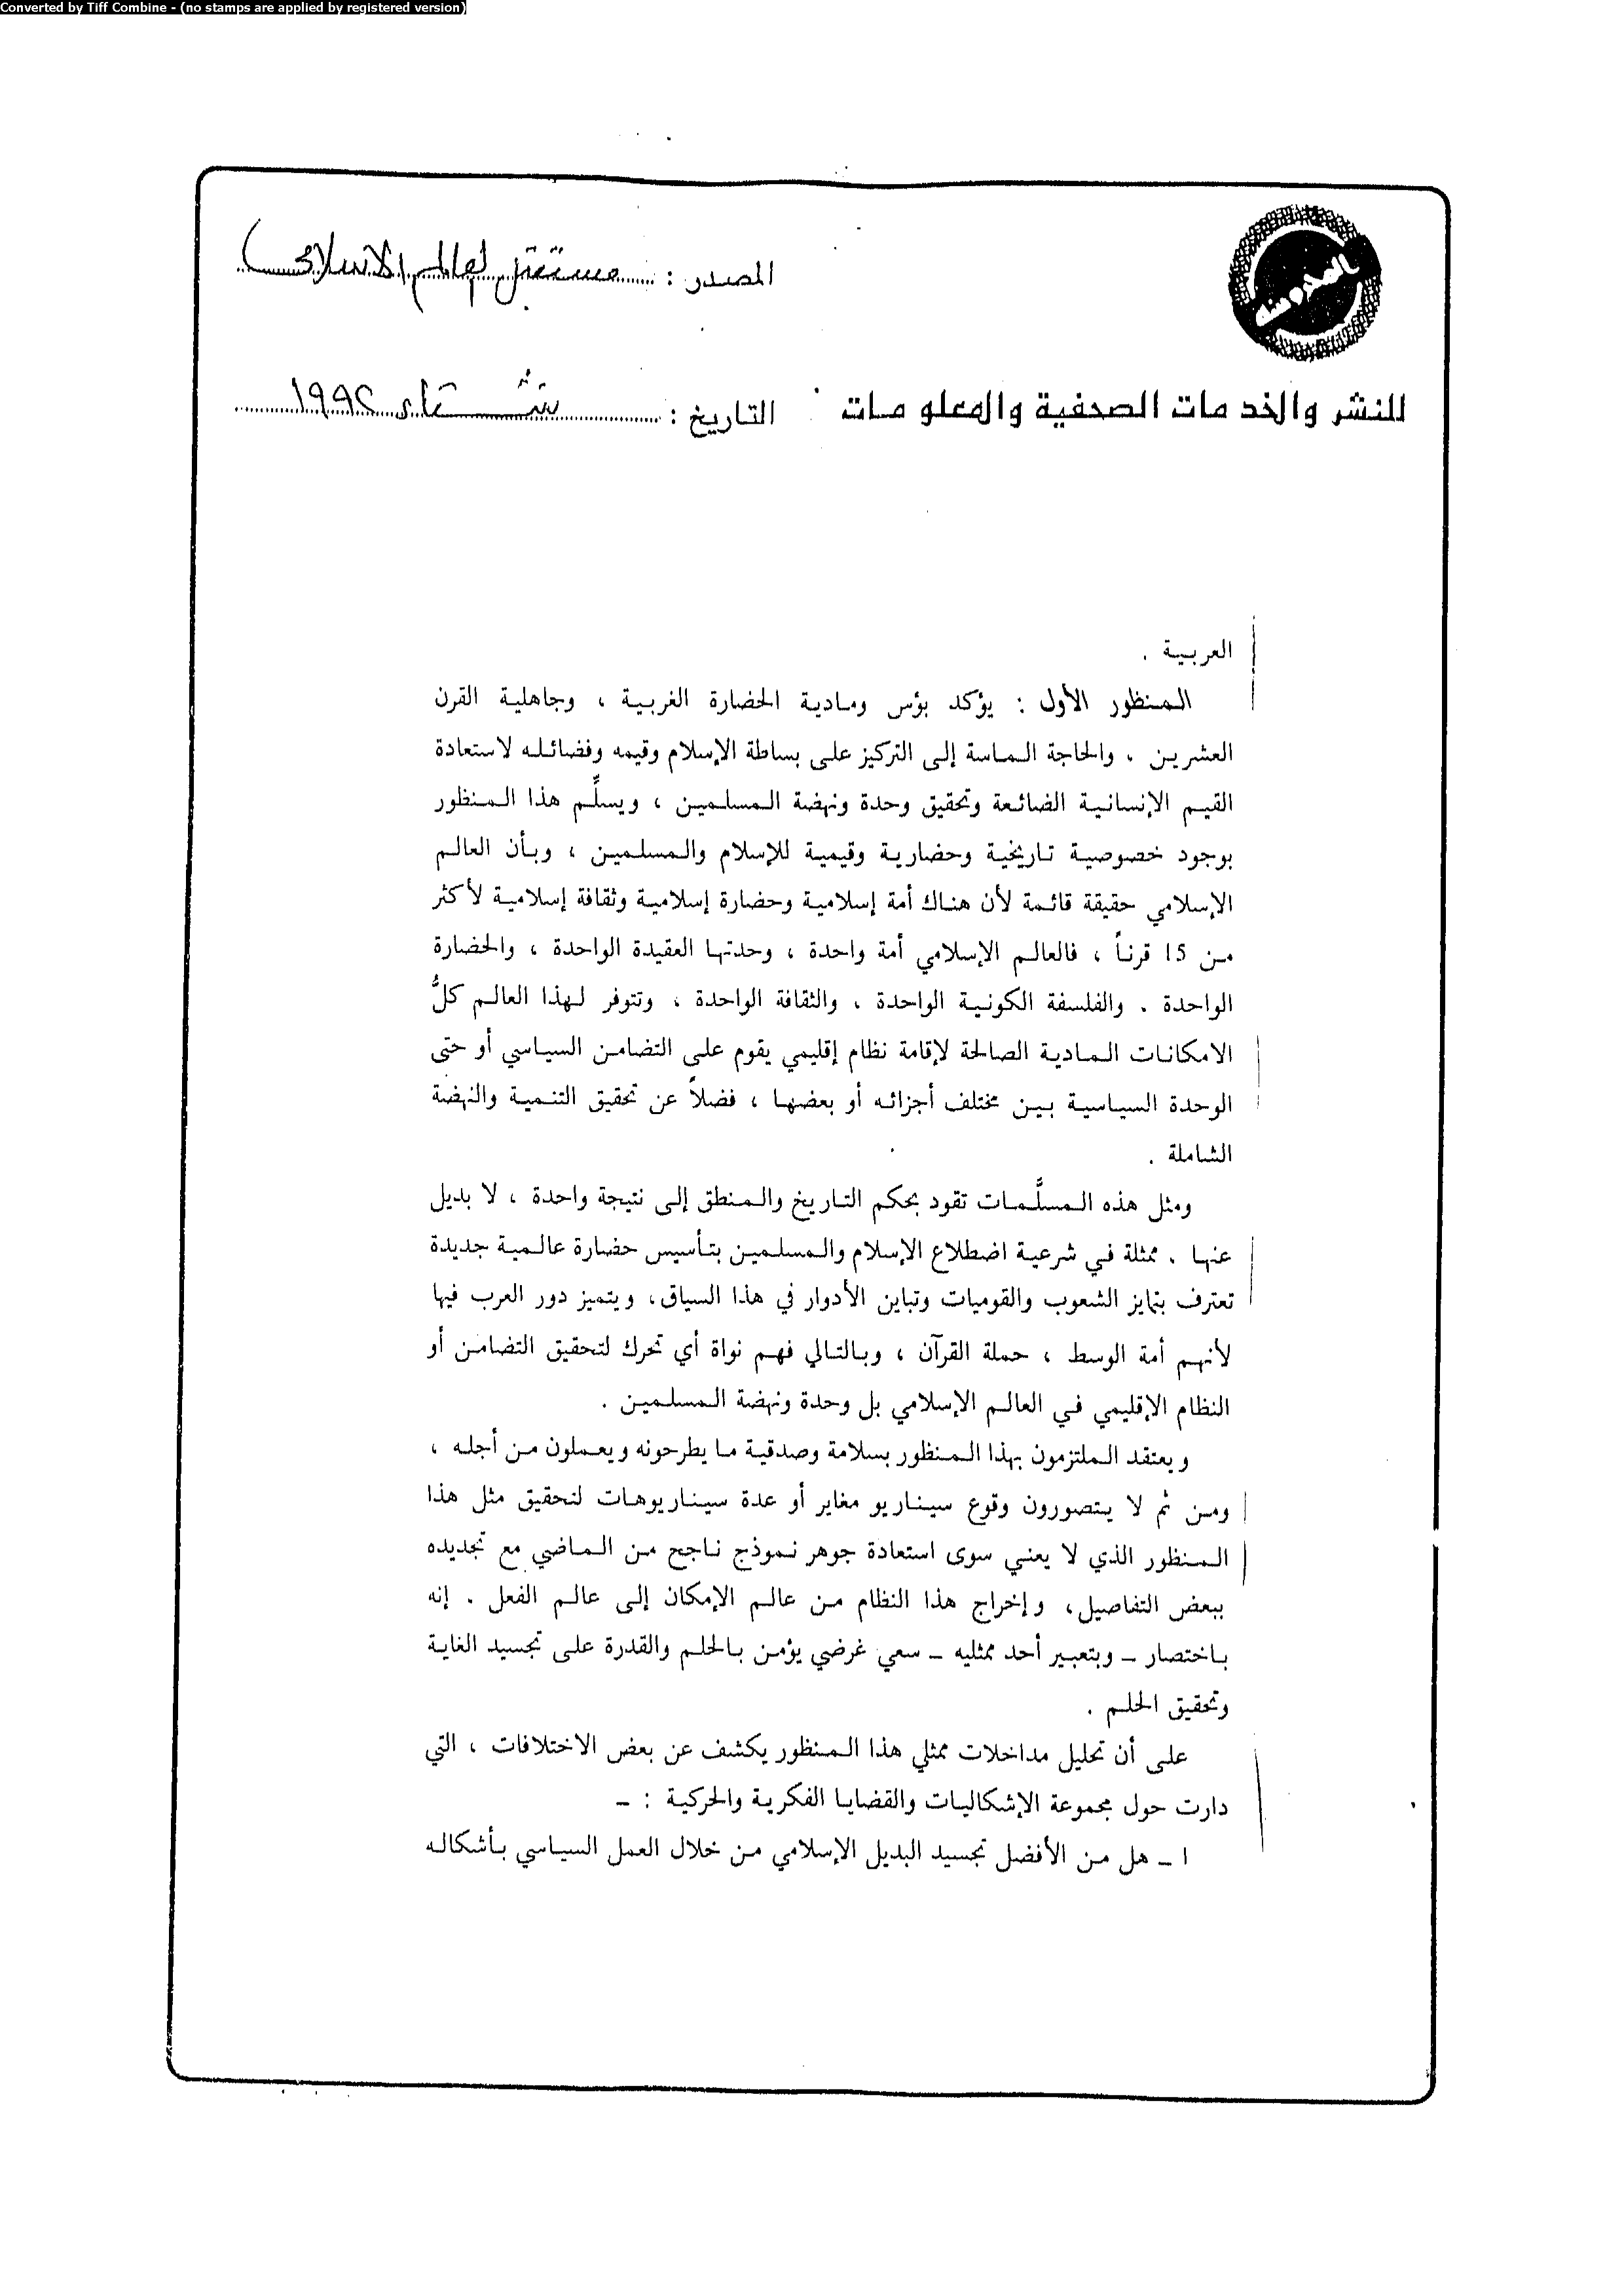 Converted by Tiff Combine - (no stamps are applied by registered version)
المصدر : مستقبل العالم الاسلامى
للنشر والخدمات الصحفية والمعلومات
التاريخ : شتاء ١٩٩٢
العربية .
المنظور الأول : يؤكد بؤس ومادية الحضارة الغربية ، وجاهلية القرن
العشرين ، والحاجة الماسة إلى التركيز على بساطة الإسلام وقيمه وفضائله لاستعادة
القيم الإنسانية الضائعة وتحقيق وحدة ونهضة المسلمين ، ويسلِّم هذا المنظور
بوجود خصوصية تاريخية وحضارية وقيمية للإسلام والمسلمين ، وبأن العالم
الإسلامي حقيقة قائمة لأن هناك أمة إسلامية وحضارة إسلامية وثقافة إسلامية لأكثر
من 15 قرناً ، فالعالم الإسلامي أمة واحدة ، وحدتها العقيدة الواحدة ، والحضارة
الواحدة . والفلسفة الكونية الواحدة ، والثقافة الواحدة ، وتتوفر لهذا العالم كلُّ
الامكانات المادية الصالحة لإقامة نظام إقليمي يقوم على التضامن السياسي أو حتى
الوحدة السياسية بين مختلف أجزائه أو بعضها ، فضلاً عن تحقيق التنمية والنهضة
الشاملة .
ومثل هذه المسلَّمات تقود بحكم التاريخ والمنطق إلى نتيجة واحدة ، لا بديل
عنها . ممثلة في شرعية اضطلاع الإسلام والمسلمين بتأسيس حضارة عالمية جديدة
تعترف بتمايز الشعوب والقوميات وتباين الأدوار في هذا السياق، ويتميز دور العرب فيها
لأنهم أمة الوسط ، حملة القرآن ، وبالتالي فهم نواة أي تحرك لتحقيق التضامن أو
النظام الإقليمي في العالم الإسلامي بل وحدة ونهضة المسلمين .
ويعتقد الملتزمون بهذا المنظور بسلامة وصدقية ما يطرحونه ويعملون من أجله ،
ومن ثم لا يتصورون وقوع سيناريو مغاير أو عدة سيناريوهات لتحقيق مثل هذا
المنظور الذي لا يعني سوى استعادة جوهر نموذج ناجح من الماضي مع تجديده
ببعض التفاصيل، وإخراج هذا النظام من عالم الإمكان إلى عالم الفعل . إنه
باختصار – وبتعبير أحد ممثليه – سعي غرضي يؤمن بالحلم والقدرة على تجسيد الغاية
وتحقيق الحلم .
على أن تحليل مداخلات ممثلي هذا المنظور يكشف عن بعض الاختلافات ، التي
دارت حول مجموعة الإشكاليات والقضايا الفكرية والحركية : –
١ – هل من الأفضل تجسيد البديل الإسلامي من خلال العمل السياسي بأشكاله